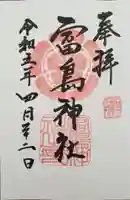 奉拝
冨島神社
令和五年四月廿二日